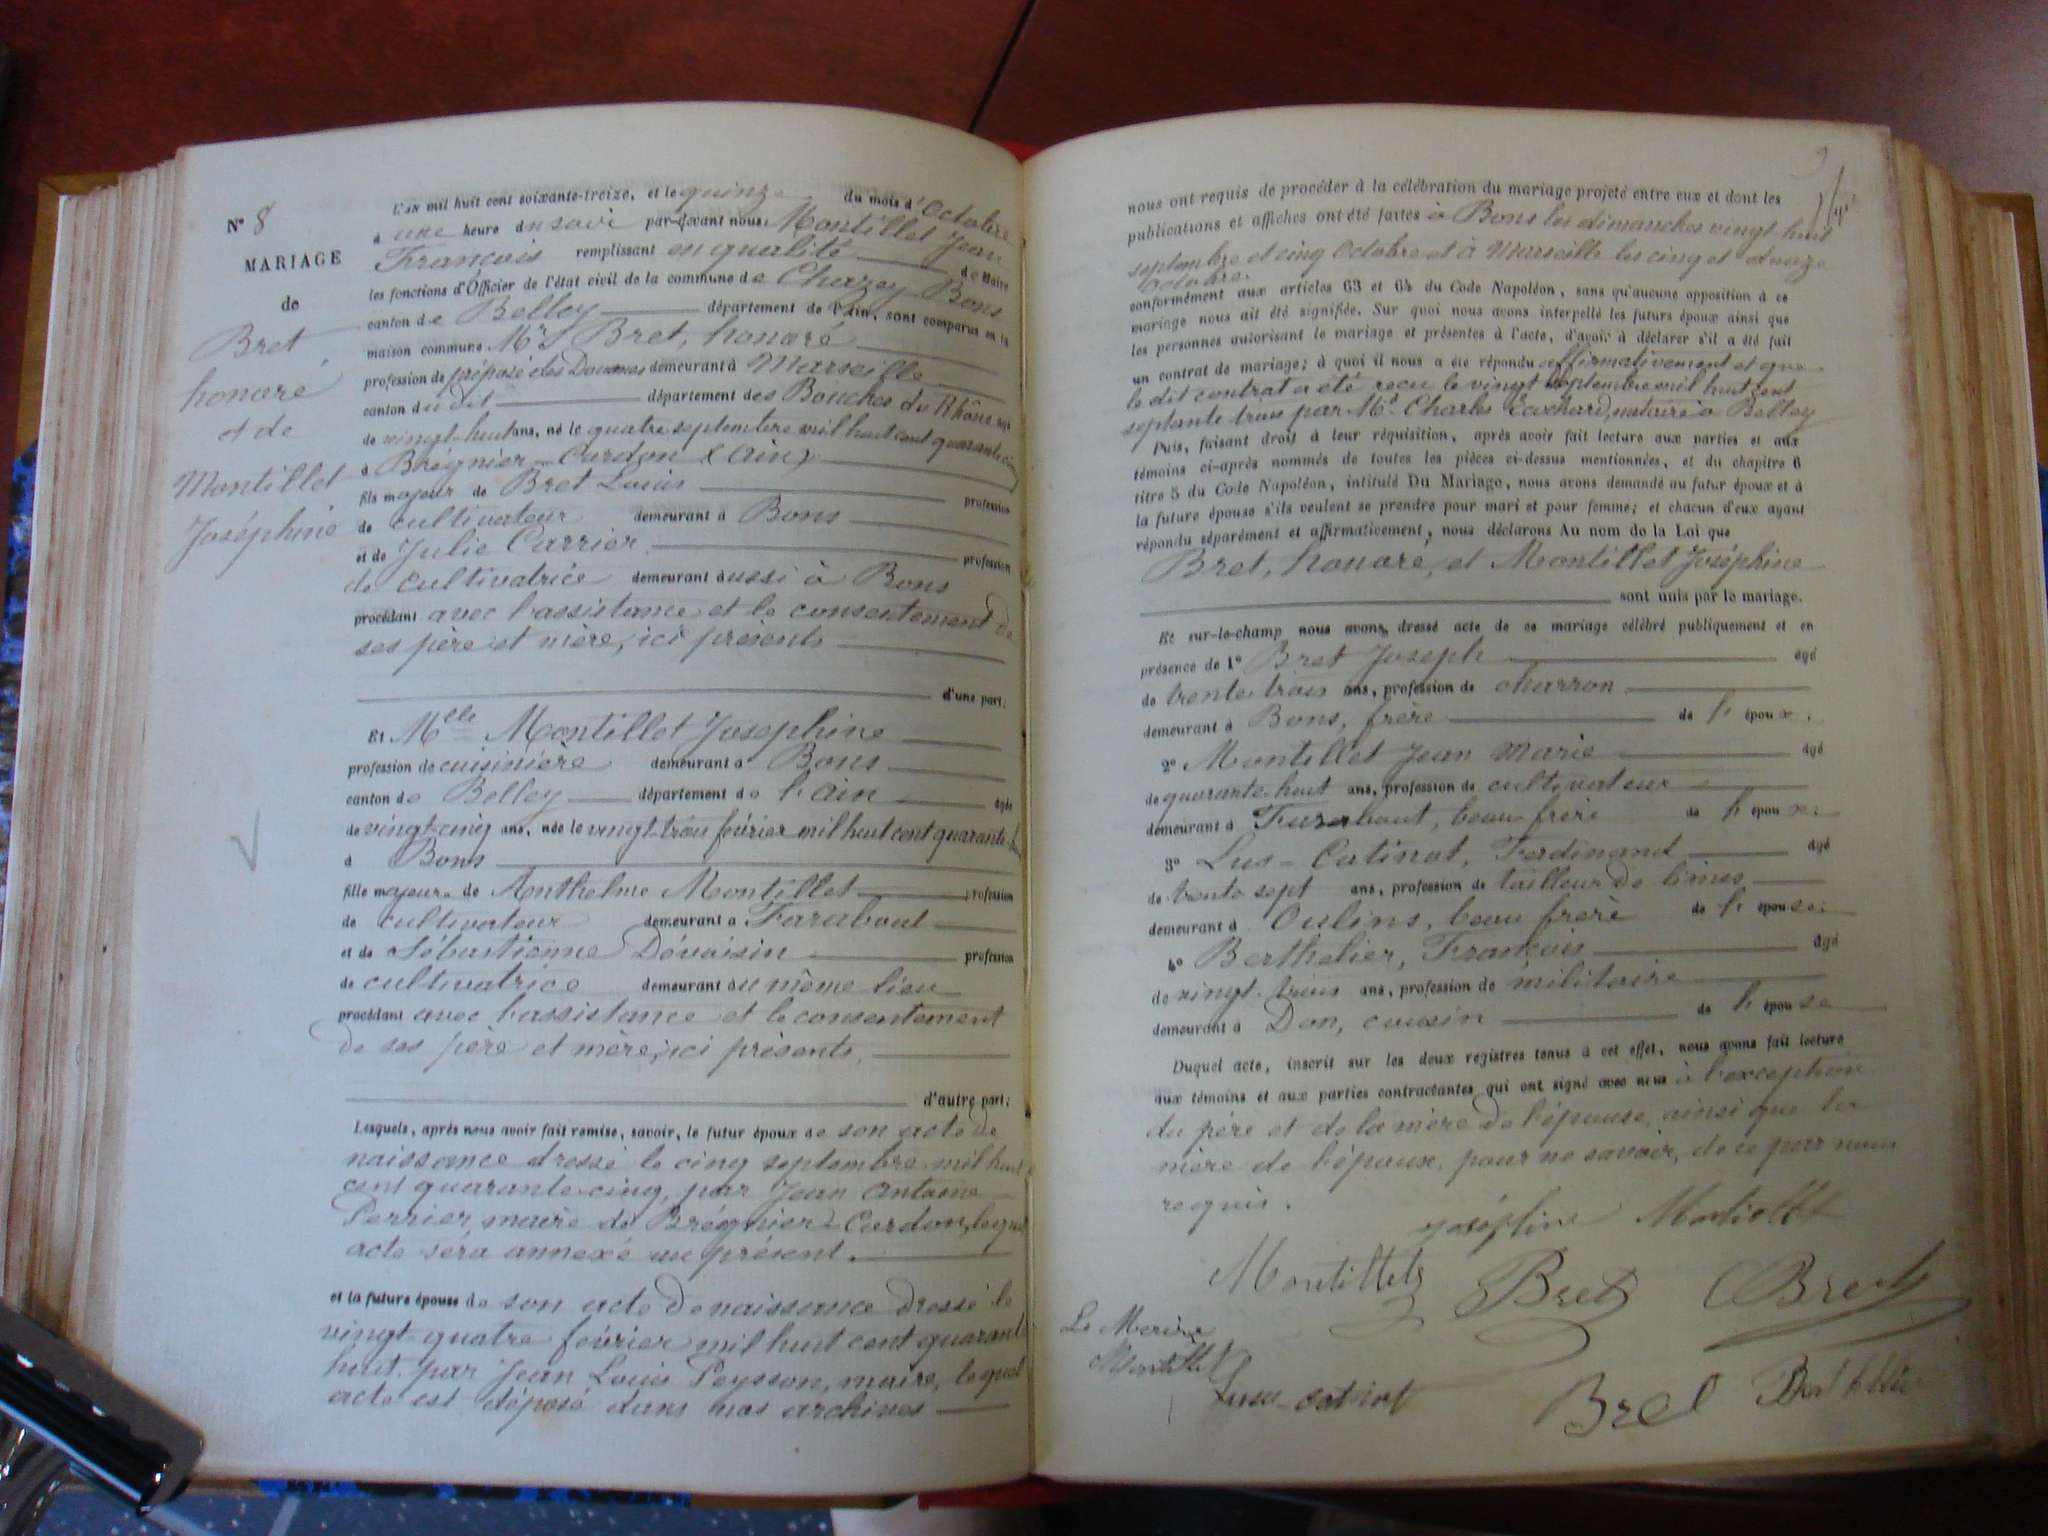 L'an mil huit cent soixante-treize, et le quinze du mois d'Octobre
N° 8
à une heure du soir par-devant nous Montillet Jean
MARIAGE
François remplissant en qualité de Maire
de
les fonctions d'Officier de l'état civil de la commune de Chazey-Bons
canton de Belley département de l'Ain, sont comparus en la
Bret
maison commune Mr Bret, honoré
honoré
profession de préposé des Douanes demeurant à Marseille
canton dudit département des Bouches du Rhône agé
& de
de vingt-huit ans, né le quatre septembre mil huit cent quarante cinq
à Brégnier-Cordon (Ain)
Montillet
fils majeur de Bret Louis profession
Joséphine
de cultivateur demeurant à Bons
et de Julie Carrier profession
de cultivatrice demeurant aussi à Bons
procédant avec l'assistance et le consentement de
ses père et mère, ici présents
d'une part;
Et Melle Montillet Josephine
profession de cuisinière demeurant à Bons
canton de Belley département de l'Ain agée
de vingt-cinq ans, née le vingt-trois février mil huit cent quarante-huit
à Bons
fille majeure de Anthelme Montillet profession
de cultivateur demeurant a Farabout
et de Sébastienne Dévoisin profession
de cultivatrice demeurant au même lieu
procédant avec l'assistance et le consentement
de ses père et mère, ici présents,
d'autre part;
Lesquels, après nous avoir fait remise, savoir, le futur époux de son acte de
naissance dressé le cinq septembre mil huit
cent quarante-cinq, par Jean Antoine
Perrier, maire de Brégnier-Cordon, lequel
acte séra annexé au présent.
et la future épouse de son acte de naissance dressé le
vingt-quatre février mil huit cent quarante
huit par Jean Louis Peysson, maire, lequel
acte est déposé dans nos archives
nous ont requis de procéder à la célébration du mariage projeté entre eux et dont les
publications et affiches ont été faites à Bons les dimanches vingt-huit
septembre et cinq Octobre et à Marseille les cinq et douze
Octobre.
conformément aux articles 63 et 64 du Code Napoléon, sans qu'aucune opposition à ce
mariage nous ait été signifiée. Sur quoi nous avons interpellé les futurs époux ainsi que
les personnes autorisant le mariage et présentes à l'acte, d'avoir à déclarer s'il a été fait
un contrat de mariage; à quoi il nous a été répondu affirmativement et que
le dit contrat a été reçu le vingt septembre mil huit cent
septante trois par Md Charles notaire à Belley
Puis, faisant droit à leur réquisition, après avoir fait lecture aux parties et aux
témoins ci-après nommés de toutes les pièces ci-dessus mentionnées, et du chapitre 6
titre 5 du Code Napoléon, intitulé Du Mariage, nous avons demandé au futur époux et à
la future épouse s'ils veulent se prendre pour mari et pour femme; et chacun d'eux ayant
répondu séparément et affirmativement, nous déclarons Au nom de la Loi que
Bret, honoré, et Montillet Joséphine
sont unis par le mariage.
Et sur-le-champ nous avons dressé acte de ce mariage célébré publiquement et en
présence de 1° Bret Joseph agé
de trente trois ans, profession de charron
demeurant à Bons, frère de l' époux;
2° Montillet Jean Marie agé
de quarante-huit ans, profession de cultivateur
demeurant à Farabout, beau frère de l' épouse;
3° Lus-Catinot, Ferdinand agé
de trente sept ans, profession de tailleur de limes
demeurant à Oulins, beau frère de l' épouse;
4° Berthelier, François âgé
de vingt-trois ans, profession de militaire
demeurant à Don, cousin de l' épouse
Duquel acte, inscrit sur les deux registres tenus à cet effet, nous avons fait lecture
aux témoins et aux parties contractantes qui ont signé avec nous à l'exception
du père et de la mère de l'épouse, ainsi que la
mère de l'époux, pour ne savoir, de ce par nous
requis.
joséphine Montillet
Montillet Bret Bret
Le Maire
Montillet
Bret